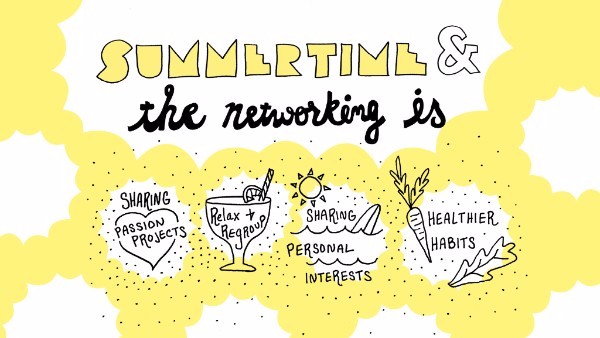 SUMMERTIME &
the networking is
SHARING
PASSION
PROJECTS
Relax +
REGROUP
SHARING
PERSONAL
INTERESTS
HEALTHIER
HABITS